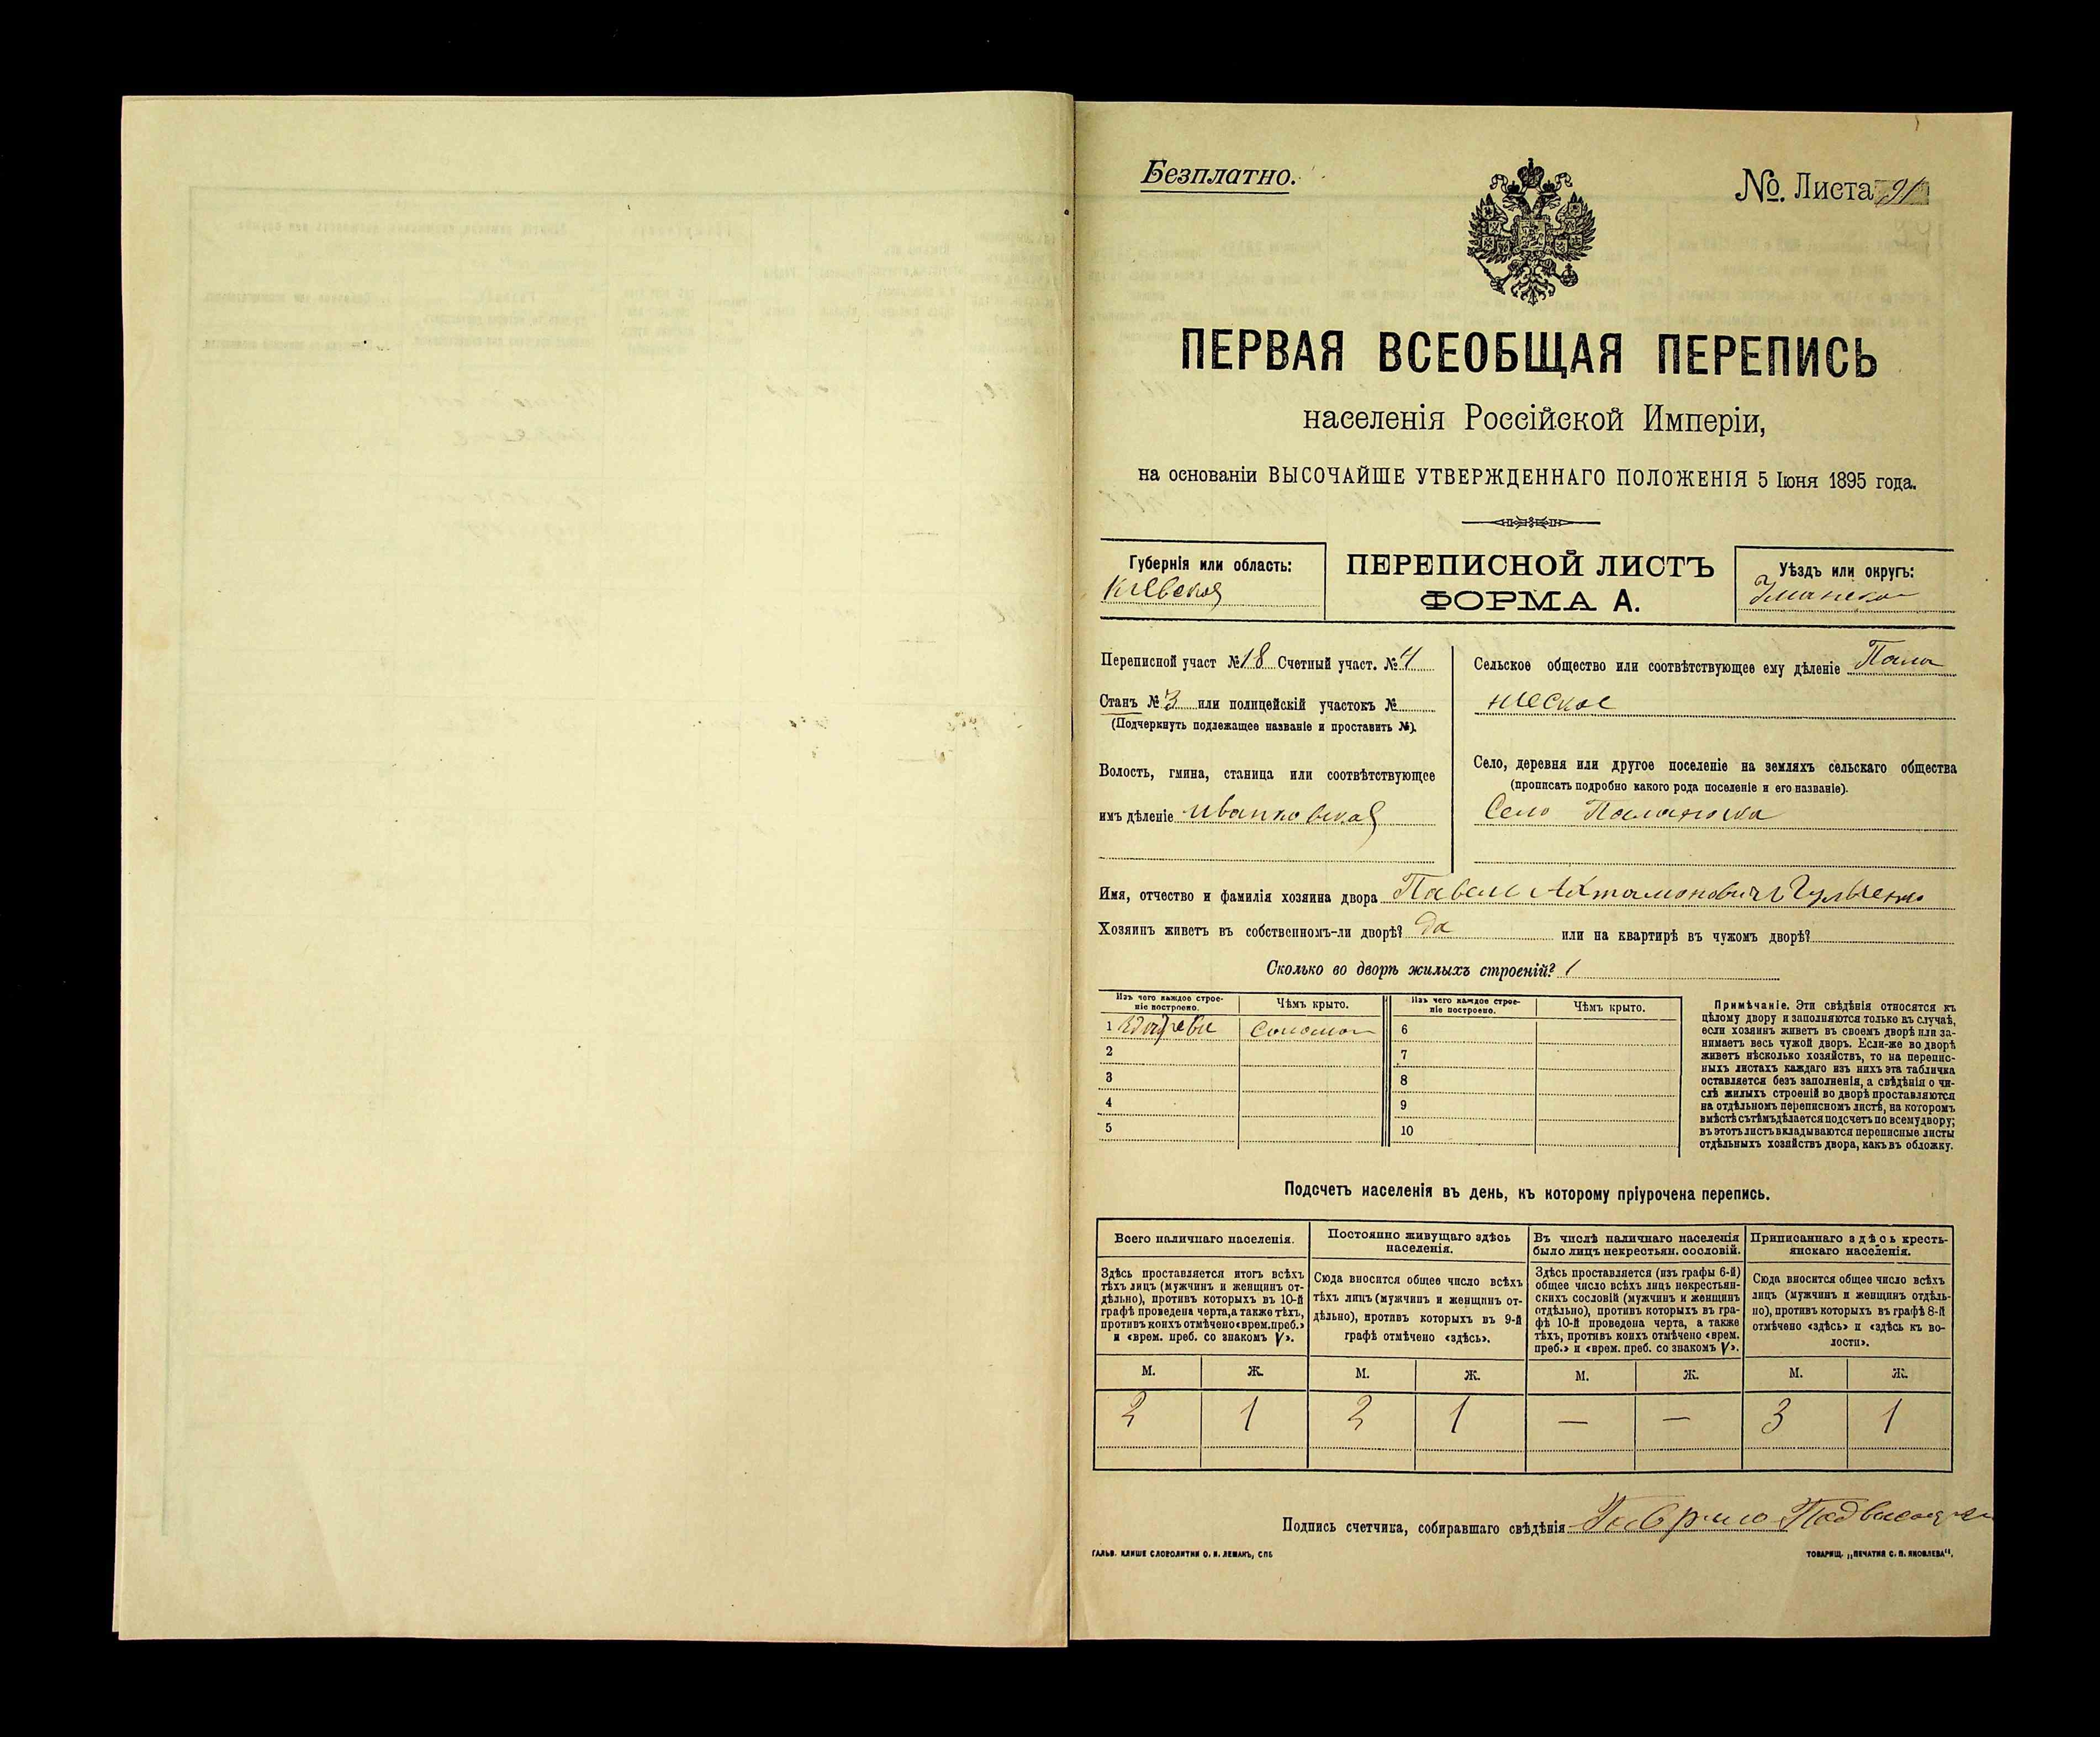 Безплатно.
№. Листа 91
ПЕРВАЯ ВСЕОБЩАЯ ПЕРЕПИСЬ
населенія Россійской Имперіи,
на основаніи ВЫСОЧАЙШЕ УТВЕРЖДЕННАГО ПОЛОЖЕНІЯ 5 Іюня 1895 года.
Губернія или область:
Кіевская
ПЕРЕПИСНОЙ ЛИСТЪ
ФОРМА А.
Уѣздъ или округъ:
Уманско
Переписной участ №18 Счетный участ. №4
Станъ №3 или полицейскій участокъ №
(Подчеркнуть подлежащее названіе и проставить №).
Волость, гмина, станица или соотвѣтствующее
имъ дѣленіе Иванковская
Сельское общество или соотвѣтствующее ему дѣленіе Пала
неское
Село, деревня или другое поселеніе на земляхъ сельскаго общества
(прописать подробно какого рода поселеніе и его названіе).
Село Паланка
Имя, отчество и фамилія хозяина двора Павелъ
Хозяинъ живетъ въ собственномъ-ли дворѣ? да или на квартирѣ въ чужомъ дворѣ?
Сколько во дворѣ жилыхъ строеній? 1
Изъ чего каждое строе-
ніе построено.
Чѣмъ крыто.
Изъ чего каждое строе-
ніе построено.
Чѣмъ крыто.
1 Соломою 6
2 7
3 8
4 9
5 10
Примѣчаніе. Эти свѣдѣнія относятся къ
цѣлому двору и заполняются только въ случаѣ,
если хозяинъ живетъ въ своемъ дворѣ или за-
нимаетъ весь чужой дворъ. Если-же во дворѣ
живетъ нѣсколько хозяйствъ, то на перепис-
ныхъ листахъ каждаго изъ нихъ эта табличка
оставляется безъ заполненія, а свѣдѣнія о чи-
слѣ жилыхъ строеній во дворѣ проставляются
на отдѣльномъ переписномъ листѣ, на которомъ
вмѣстѣ съ тѣмъ дѣлается подсчетъ по всему двору;
въ этотъ листъ вкладываются переписные листы
отдѣльныхъ хозяйствъ двора, какъ въ обложку.
Подсчетъ населенія въ день, къ которому пріурочена перепись.
Всего наличнаго населенія.
Здѣсь проставляется итогъ всѣхъ
тѣхъ лицъ (мужчинъ и женщинъ от-
дѣльно), противъ которыхъ въ 10-й
графѣ проведена черта, а также тѣхъ,
противъ коихъ отмѣчено «врем. преб.»
и «врем. преб. со знакомъ V».
Постоянно живущаго здѣсь
населенія.
Сюда вносится общее число всѣхъ
тѣхъ лицъ (мужчинъ и женщинъ от-
дѣльно), противъ которыхъ въ 9-й
графѣ отмѣчено «здѣсь».
Въ числѣ наличнаго населенія
было лицъ некрестьян. сословій.
Здѣсь проставляется (изъ графы 6-й)
общее число всѣхъ лицъ некрестьян-
скихъ сословій (мужчинъ и женщинъ
отдѣльно), противъ которыхъ въ гра-
фѣ 10-й проведена черта, а также
тѣхъ, противъ коихъ отмѣчено «врем.
преб.» и «врем. преб. со знакомъ V».
Приписаннаго здѣсь кресть-
янскаго населенія.
Сюда вносится общее число всѣхъ
лицъ (мужчинъ и женщинъ отдѣль-
но), противъ которыхъ въ графѣ 8-й
отмѣчено «здѣсь» и «здѣсь къ во-
лости».
М. Ж. М. Ж. М. Ж. М. Ж.
2 1 2 1 — — 3 1
Подпись счетчика, собиравшаго свѣдѣнія Гаврило
ГАЛЬВ. КЛИШЕ СЛОВОЛИТНИ О. И. ЛЕМАНЪ, СПБ
ТОВАРИЩ. „ПЕЧАТНЯ С. П. ЯКОВЛЕВА".